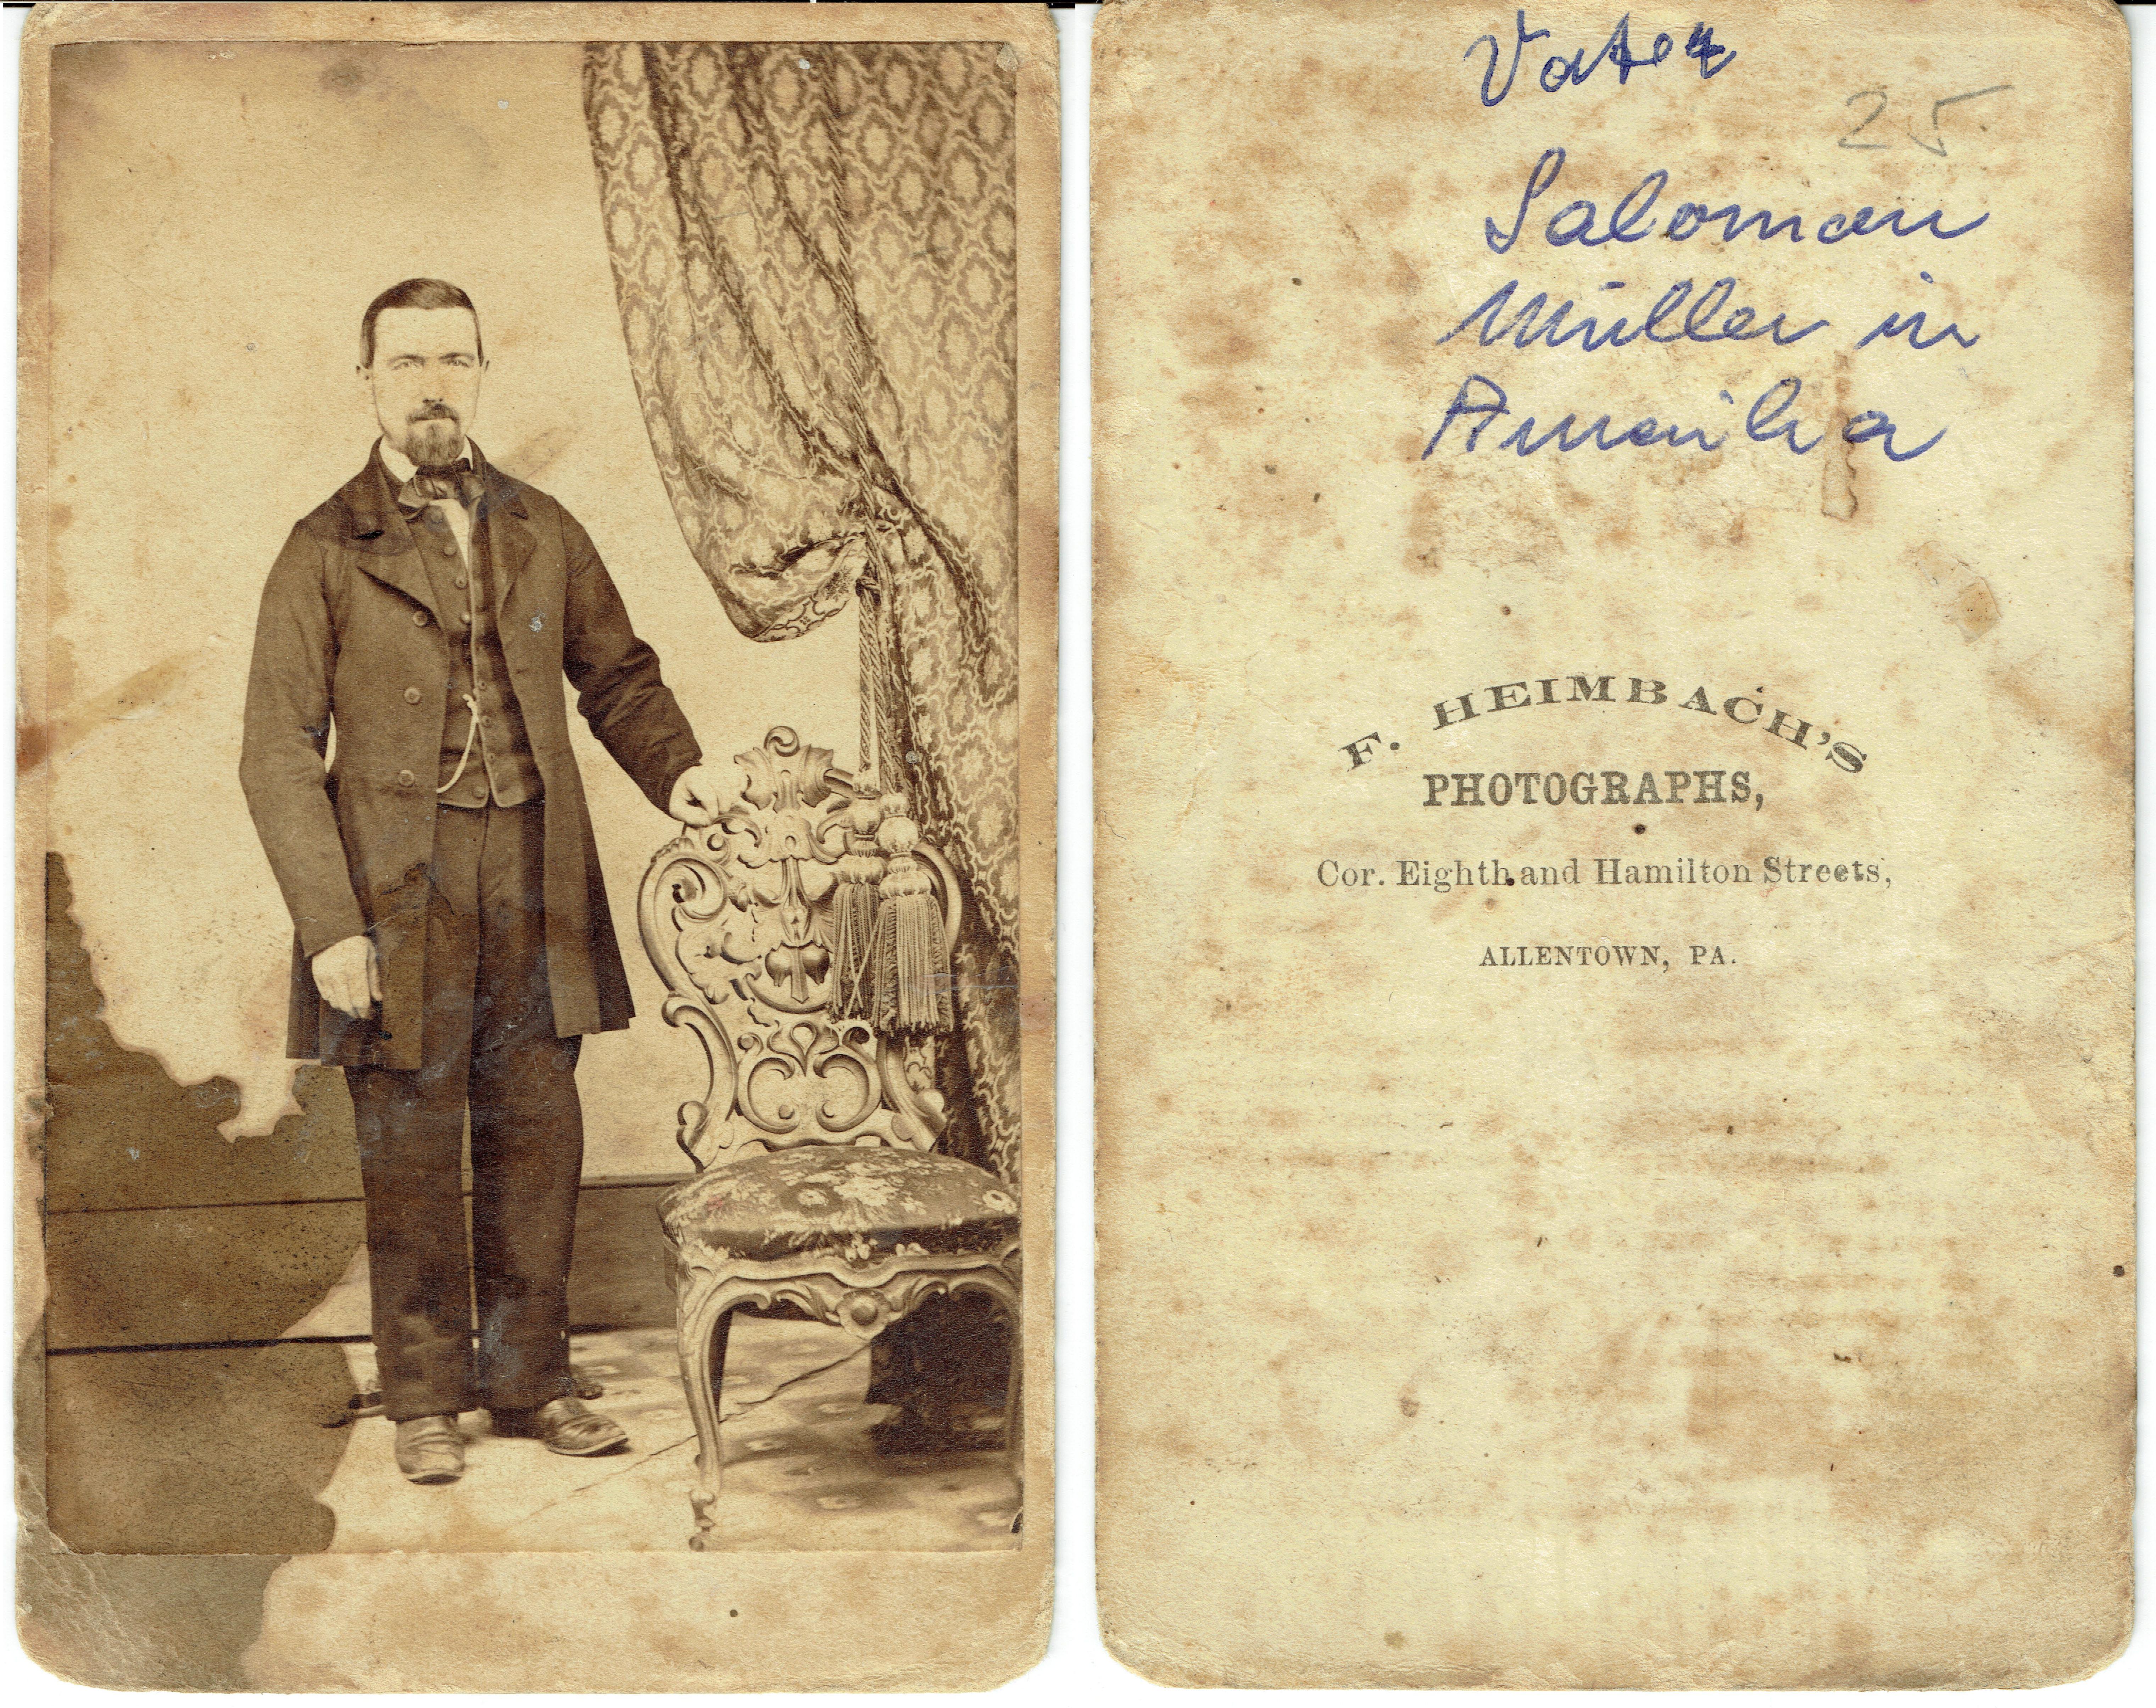 Vater
25
Saloman
Müller in
Amerika
F. HEIMBACH'S
PHOTOGRAPHS,
Cor. Eighth and Hamilton Streets,
ALLENTOWN, PA.